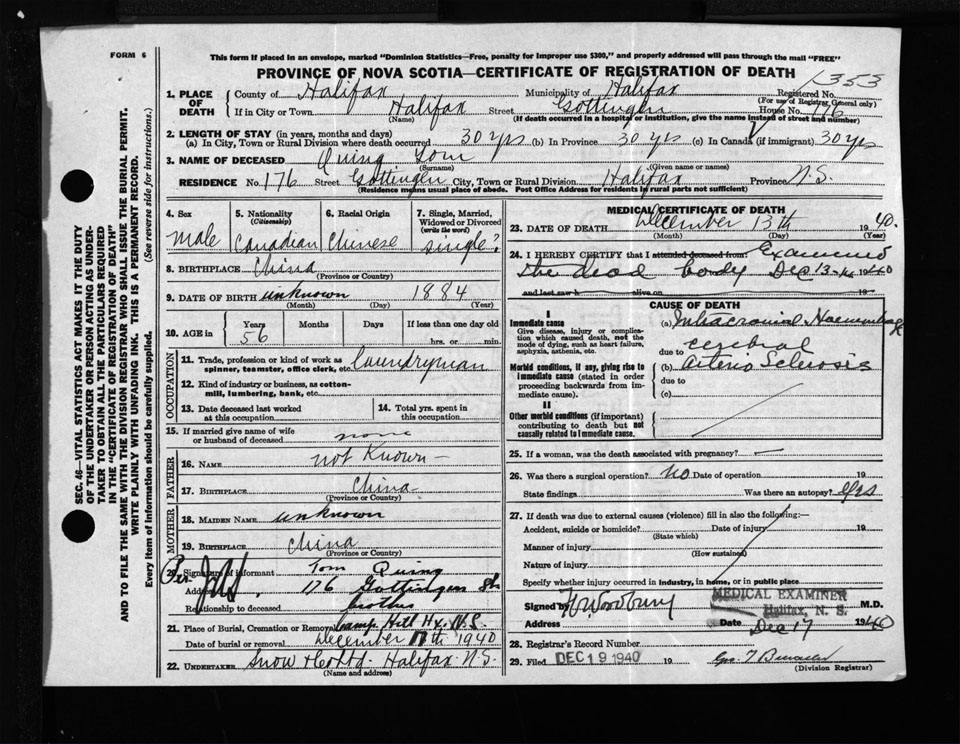 FORM 6
This form if placed in an envelope, marked "Dominion Statistics—Free, penalty for improper use $300," and properly addressed will pass through the mail "FREE"
PROVINCE OF NOVA SCOTIA—CERTIFICATE OF REGISTRATION OF DEATH
1353
1. PLACE OF DEATH
County of Halifax Municipality of Halifax Registered No.
(For use of Registrar General only)
If in City or Town Halifax Street Gottingen House No. 176
(Name) (If death occurred in a hospital or institution, give the name instead of street and number)
2. LENGTH OF STAY (in years, months and days)
(a) In City, Town or Rural Division where death occurred 30 yrs (b) In Province 30 yrs (c) In Canada (if immigrant) 30 yrs
3. NAME OF DECEASED Quing Tom
(Surname) (Given name or names)
RESIDENCE No. 176 Street Gottingen City, Town or Rural Division Halifax Province N.S.
(Residence means usual place of abode. Post Office Address for Residents in rural parts not sufficient)
4. Sex
Male
5. Nationality
(Citizenship)
Canadian
6. Racial Origin
Chinese
7. Single, Married, Widowed or Divorced
(write the word)
Single?
8. BIRTHPLACE China
(Province or Country)
9. DATE OF BIRTH unknown 1884
(Month) (Day) (Year)
10. AGE in
Years Months Days If less than one day old
56 hrs. or min.
OCCUPATION
11. Trade, profession or kind of work as spinner, teamster, office clerk, etc. Laundryman
12. Kind of industry or business, as cotton-mill, lumbering, bank, etc.
13. Date deceased last worked at this occupation
14. Total yrs. spent in this occupation
15. If married give name of wife or husband of deceased none
FATHER
16. Name not Known—
17. Birthplace China
(Province or Country)
MOTHER
18. Maiden Name unknown
19. Birthplace China
(Province or Country)
20. Signature of informant Tom Quing
Per
Address 176 Gottingen St
Relationship to deceased brother
21. Place of Burial, Cremation or Removal Camp Hill Hx. N.S.
Date of burial or removal December 17th 1940
22. Undertaker Snow & Co Ltd. Halifax N.S.
(Name and address)
MEDICAL CERTIFICATE OF DEATH
23. DATE OF DEATH December 13th 1940.
(Month) (Day) (Year)
24. I HEREBY CERTIFY that I attended deceased from: Examined
the dead body Dec 13th 1940
and last saw h alive on 19
CAUSE OF DEATH
I
Immediate cause
Give disease, injury or complication which caused death, not the mode of dying, such as heart failure, asphyxia, asthenia, etc.
Morbid conditions, if any, giving rise to immediate cause (stated in order proceeding backwards from immediate cause).
II
Other morbid conditions (if important) contributing to death but not causally related to immediate cause.
(a) Intracranial Haemorrhage
due to cerebral
(b) arterio Sclerosis
due to
(c)
25. If a woman, was the death associated with pregnancy? —
26. Was there a surgical operation? NO Date of operation 19
State findings Was there an autopsy? yes
27. If death was due to external causes (violence) fill in also the following:—
Accident, suicide or homicide? Date of injury 19
(State which)
Manner of injury
(How sustained)
Nature of injury
Specify whether injury occurred in industry, in home, or in public place
MEDICAL EXAMINER
Halifax, N. S.
Signed by M.D.
Address Date Dec 17 1940
28. Registrar's Record Number
29. Filed DEC 19 1940 19
(Division Registrar)
SEC. 46—VITAL STATISTICS ACT MAKES IT THE DUTY
OF THE UNDERTAKER OR PERSON ACTING AS UNDER-
TAKER TO OBTAIN ALL THE PARTICULARS REQUIRED
IN THE "CERTIFICATE OF REGISTRATION OF DEATH"
AND TO FILE THE SAME WITH THE DIVISION REGISTRAR WHO SHALL ISSUE THE BURIAL PERMIT.
WRITE PLAINLY WITH UNFADING INK. THIS IS A PERMANENT RECORD.
Every item of information should be carefully supplied. (See reverse side for instructions.)